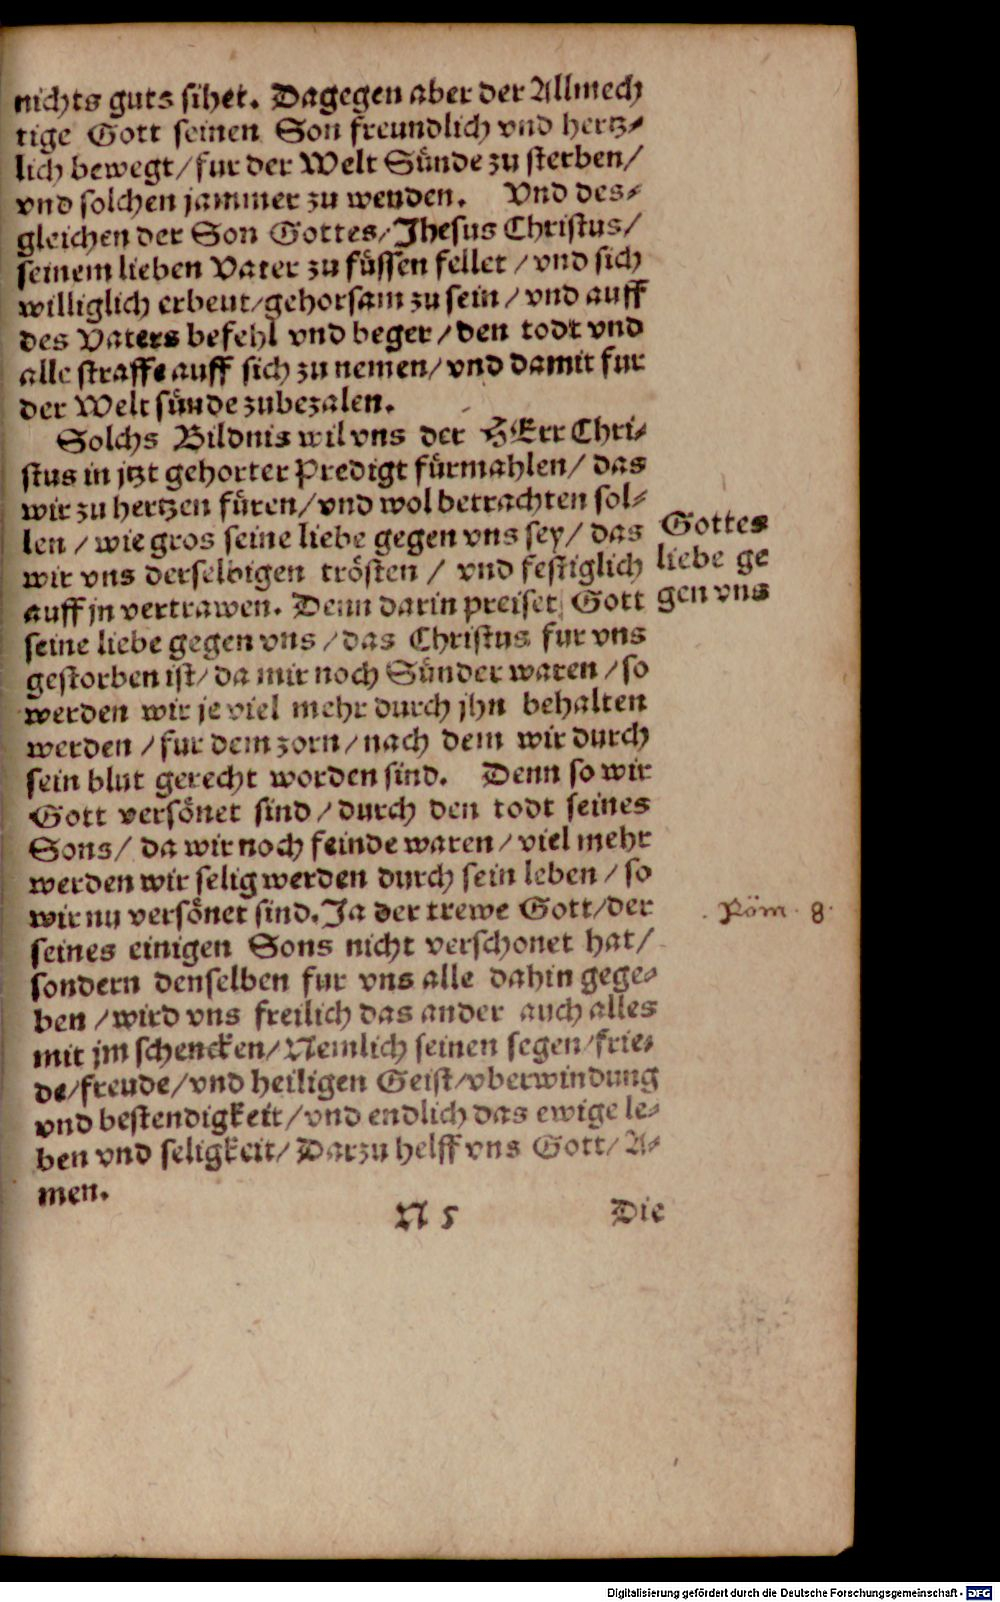 nichts guts sihet. Dagegen aber der Allmech
tige Gott seinen Son freundlich vnd hertz⸗
lich bewegt/fur der Welt Sünde zu sterben/
vnd solchen jammer zu wenden. Vnd des⸗
gleichen der Son Gottes/Jhesus Christus/
seinem lieben Vater zu füssen fellet/vnd sich
williglich erbeut/gehorsam zu sein/vnd auff
des Vaters befehl vnd beger/den todt vnd
alle straffe auff sich zu nemen/vnd damit fur
der Welt sünde zubezalen.
Solchs Bildnis wil vns der HErr Chri⸗
stus in jtzt gehorter Predigt fürmahlen/das
wir zu hertzen füren/vnd wol betrachten sol⸗
len/wie gros seine liebe gegen vns sey/das
wir vns derselbigen trösten/vnd festiglich
auff jn vertrawen. Denn darin preiset Gott
seine liebe gegen vns/das Christus fur vns
gestorben ist/da mir noch Sünder waren/so
werden wir je viel mehr durch jhn behalten
werden/fur dem zorn/nach dem wir durch
sein blut gerecht worden sind. Denn so wir
Gott versönet sind/durch den todt seines
Sons/da wir noch feinde waren/viel mehr
werden wir selig werden durch sein leben/so
wir nu versönet sind. Ja der trewe Gott/der
seines einigen Sons nicht verschonet hat/
sondern denselben fur vns alle dahin gege⸗
ben/wird vns freilich das ander auch alles
mit jm schencken/Nemlich seinen segen/frie⸗
de/freude/vnd heiligen Geist/vberwindung
vnd bestendigkeit/vnd endlich das ewige le⸗
ben vnd seligkeit/Darzu helff vns Gott/A⸗
men.
Gottes
liebe ge
gen vns
Röm. 8.
N 5 Die
Digitalisierung gefördert durch die Deutsche Forschungsgemeinschaft - DFG